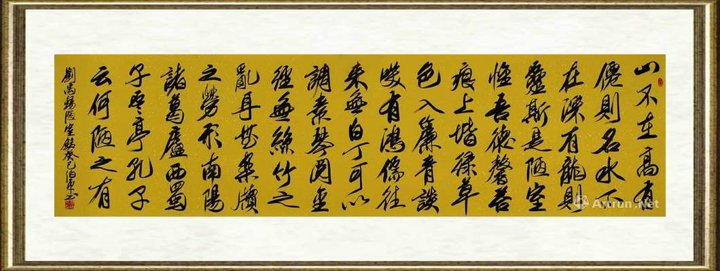 山不在高有
僊則名水不
在深有龍則
靈斯是陋室
惟吾德馨苔
痕上堦綠草
色入簾青談
咲有鴻儒往
來無白丁可以
調素琴閱金
經無絲竹之
亂耳無案牘
之勞形南陽
諸葛廬西蜀
子雲亭孔子
云何陋之有
劉禹錫陋室銘癸巳伯書
Artron.Net